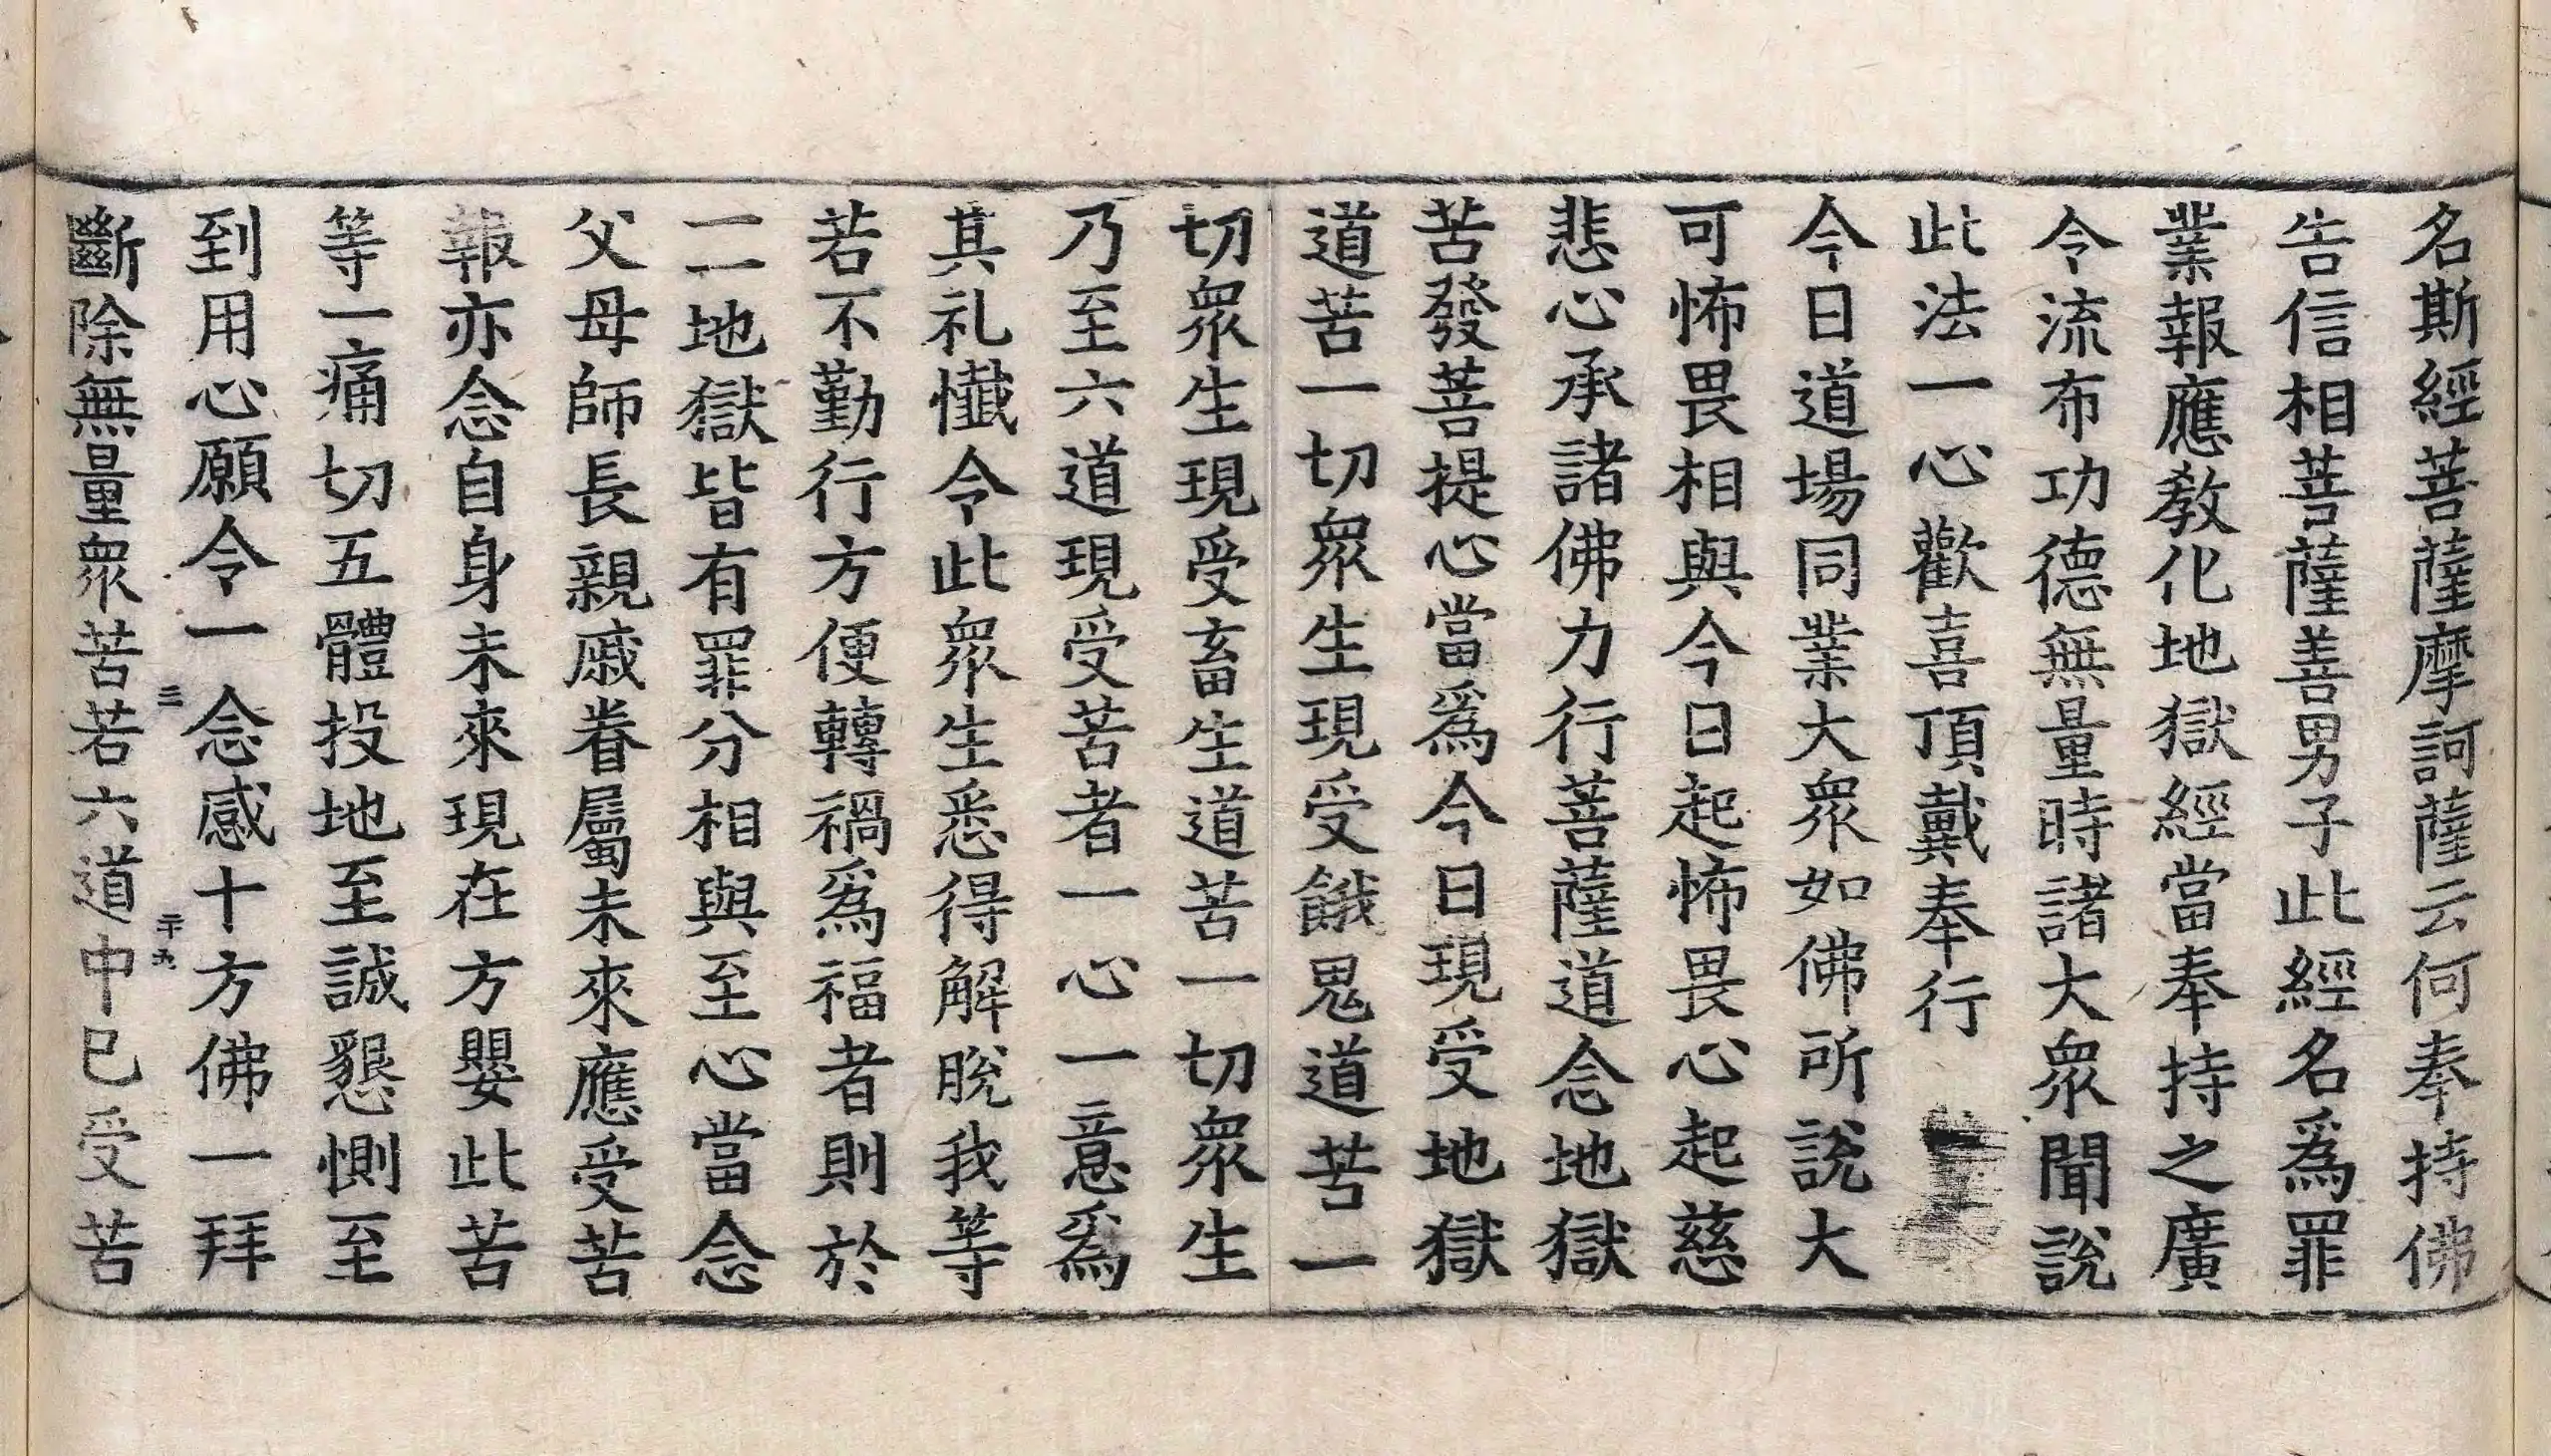 名斯經菩薩摩訶薩云何奉持佛
告信相菩薩善男子此經名爲罪
業報應教化地獄經當奉持之廣
令流布功德無量時諸大眾聞說
此法一心歡喜頂戴奉行
今日道場同業大眾如佛所說大
可怖畏相與今日起怖畏心起慈
悲心承諸佛力行菩薩道念地獄
苦發菩提心當爲今日現受地獄
道苦一切眾生現受餓鬼道苦一
切眾生現受畜生道苦一切眾生
乃至六道現受苦者一心一意爲
其礼懺令此眾生悉得解脫我等
若不勤行方便轉禍爲福者則於
一一地獄皆有罪分相與至心當念
父母師長親戚眷屬未來應受苦
報亦念自身未來現在方嬰此苦
等一痛切五體投地至誠懇惻至
到用心願令一念感十方佛一拜
三 二十九
斷除無量眾苦若六道中已受苦